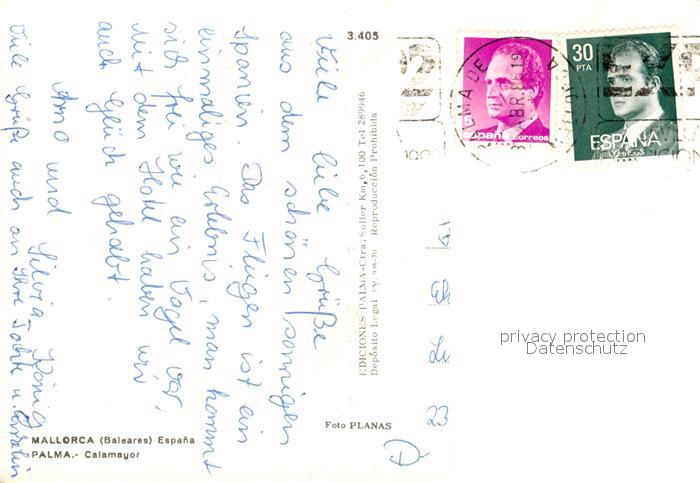 3.405
30
PTA
ESPAÑA
Correos
5
España correos
MA DE
Viele liebe Grüße
aus dem schönen sonnigen
Spanien. Das Fliegen ist ein
einmaliges Erlebnis, man kommt
sich frei wie ein Vogel vor,
Mit dem Hotel haben wir
auch Glück gehabt.
Arno und Silvia König
Viele Grüße auch an Ihre Tochter u.
EDICIONES PALMA-Ctra. Soller Km,6,100 Tel 289946
Depósito Legal Reproducción Prohibida
privacy protection
Datenschutz
23
Foto PLANAS
MALLORCA (Baleares) España
PALMA.- Calamayor